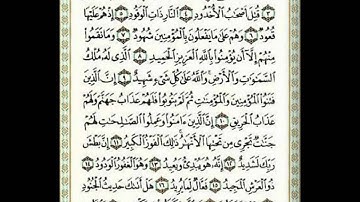 ٣ قُتِلَ أَصْحَٰبُ ٱلْأُخْدُودِ ٤ ٱلنَّارِ ذَاتِ ٱلْوَقُودِ ٥ إِذْ هُمْ عَلَيْهَا
قُعُودٌ ٦ وَهُمْ عَلَىٰ مَا يَفْعَلُونَ بِٱلْمُؤْمِنِينَ شُهُودٌ ٧ وَمَا نَقَمُوا۟
مِنْهُمْ إِلَّآ أَن يُؤْمِنُوا۟ بِٱللَّهِ ٱلْعَزِيزِ ٱلْحَمِيدِ ٨ ٱلَّذِى لَهُۥ مُلْكُ
ٱلسَّمَٰوَٰتِ وَٱلْأَرْضِ وَٱللَّهُ عَلَىٰ كُلِّ شَىْءٍ شَهِيدٌ ٩ إِنَّ ٱلَّذِينَ
فَتَنُوا۟ ٱلْمُؤْمِنِينَ وَٱلْمُؤْمِنَٰتِ ثُمَّ لَمْ يَتُوبُوا۟ فَلَهُمْ عَذَابُ جَهَنَّمَ وَلَهُمْ
عَذَابُ ٱلْحَرِيقِ ١٠ إِنَّ ٱلَّذِينَ ءَامَنُوا۟ وَعَمِلُوا۟ ٱلصَّٰلِحَٰتِ لَهُمْ
جَنَّٰتٌ تَجْرِى مِن تَحْتِهَا ٱلْأَنْهَٰرُ ذَٰلِكَ ٱلْفَوْزُ ٱلْكَبِيرُ ١١ إِنَّ بَطْشَ
رَبِّكَ لَشَدِيدٌ ١٢ إِنَّهُۥ هُوَ يُبْدِئُ وَيُعِيدُ ١٣ وَهُوَ ٱلْغَفُورُ ٱلْوَدُودُ ١٤
ذُو ٱلْعَرْشِ ٱلْمَجِيدُ ١٥ فَعَّالٌ لِّمَا يُرِيدُ ١٦ هَلْ أَتَىٰكَ حَدِيثُ ٱلْجُنُودِ